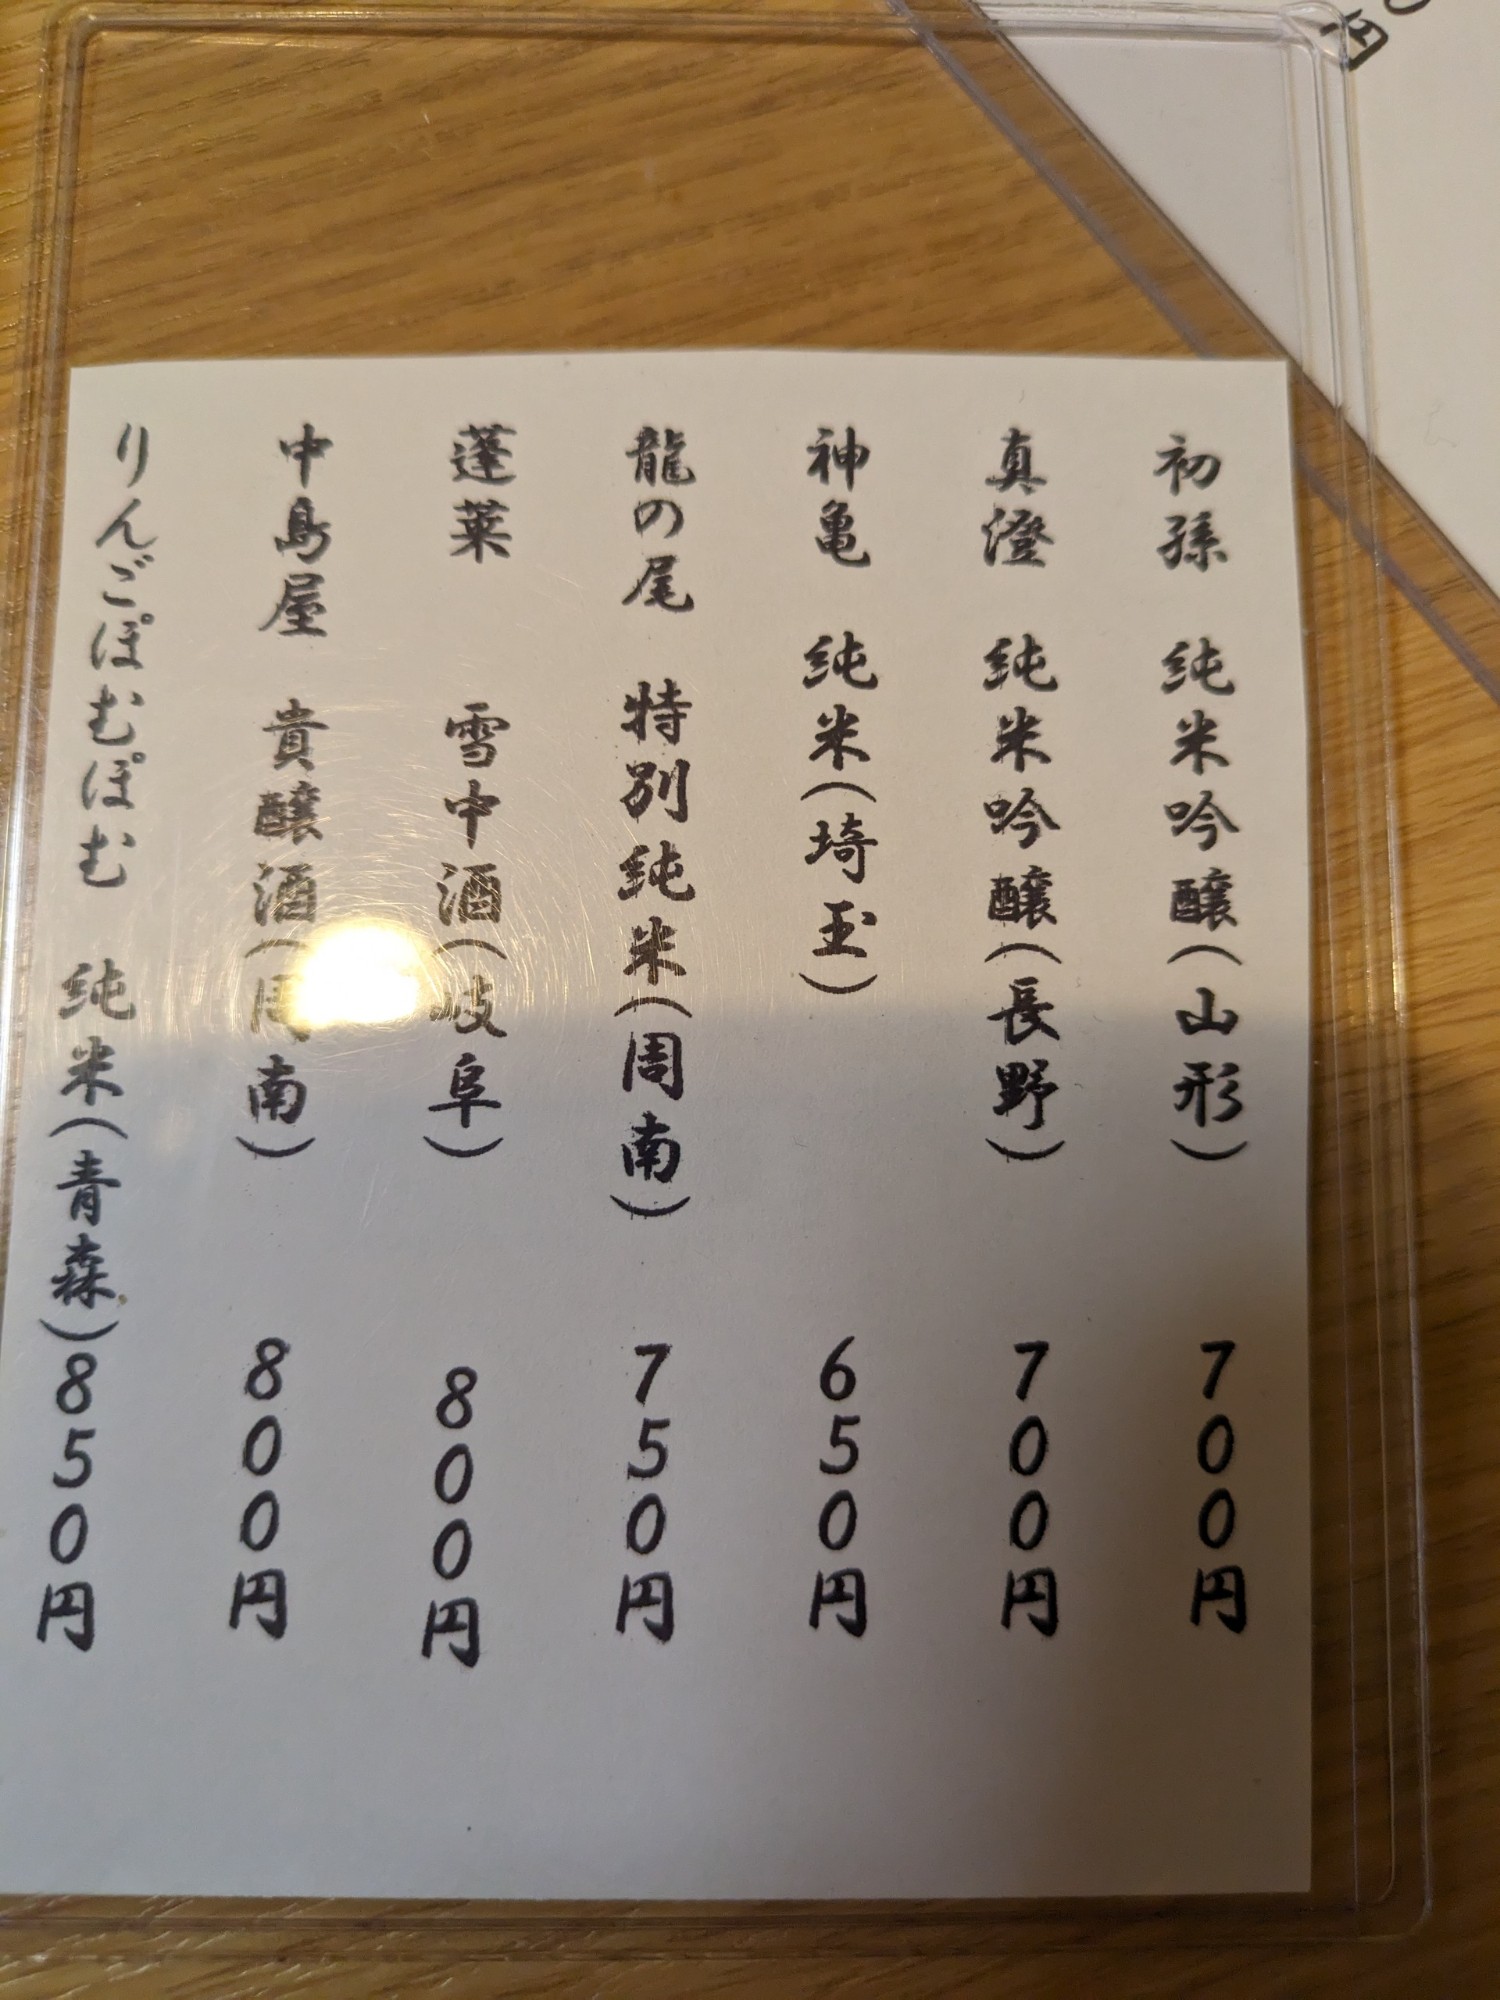 初孫 純米吟醸(山形) 700円
真澄 純米吟醸(長野) 700円
神亀 純米(埼玉) 650円
龍の尾 特別純米(周南) 750円
蓬莱 雪中酒(岐阜) 800円
中島屋 貴醸酒(周南) 800円
りんごぽむぽむ 純米(青森) 850円
円